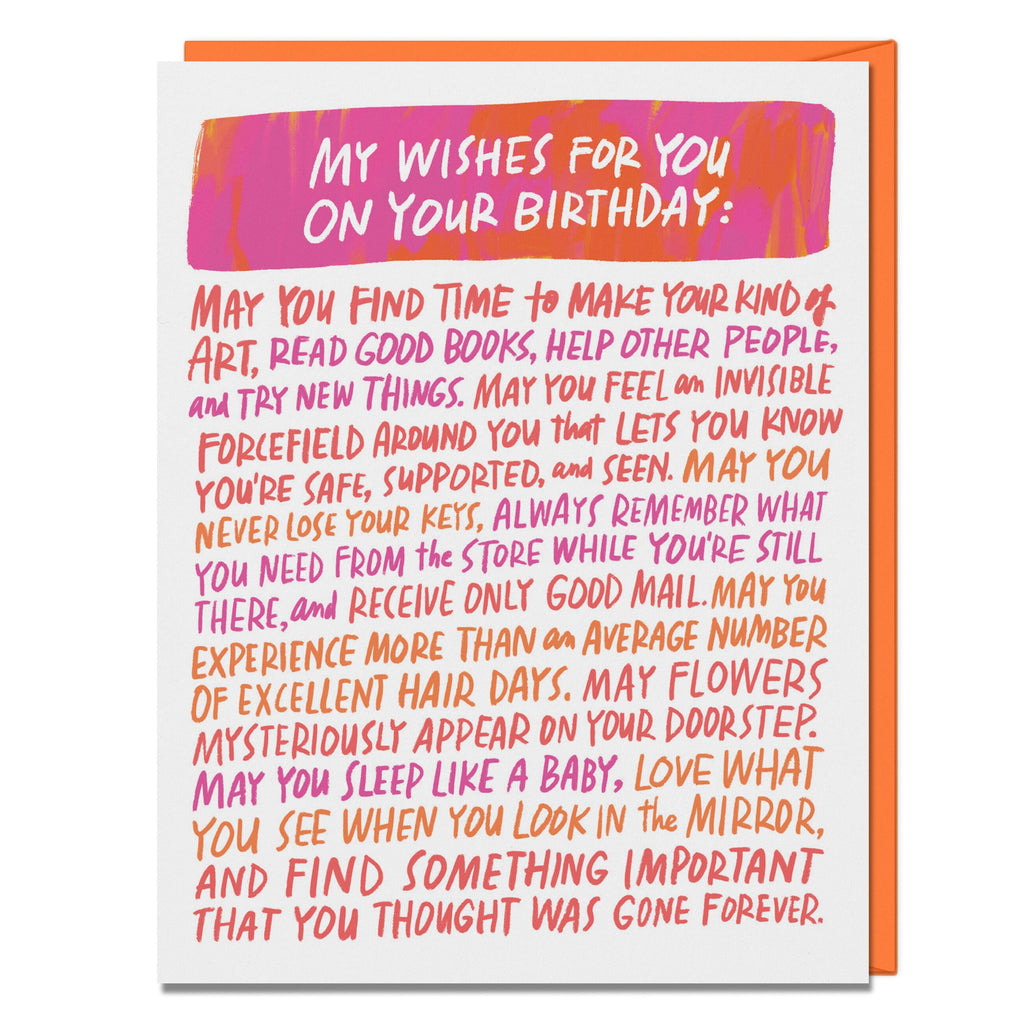 MY WISHES FOR YOU
ON YOUR BIRTHDAY:
MAY YOU FIND TIME to MAKE YOUR KIND of
ART, READ GOOD BOOKS, HELP OTHER PEOPLE,
and TRY NEW THINGS. MAY YOU FEEL an INVISIBLE
FORCEFIELD AROUND YOU that LETS YOU KNOW
YOU'RE SAFE, SUPPORTED, and SEEN. MAY YOU
NEVER LOSE YOUR KEYS, ALWAYS REMEMBER WHAT
YOU NEED FROM the STORE WHILE YOU'RE STILL
THERE, and RECEIVE ONLY GOOD MAIL. MAY YOU
EXPERIENCE MORE THAN an AVERAGE NUMBER
OF EXCELLENT HAIR DAYS. MAY FLOWERS
MYSTERIOUSLY APPEAR ON YOUR DOORSTEP.
MAY YOU SLEEP LIKE A BABY, LOVE WHAT
YOU SEE WHEN YOU LOOK IN the MIRROR,
AND FIND SOMETHING IMPORTANT
THAT YOU THOUGHT WAS GONE FOREVER.